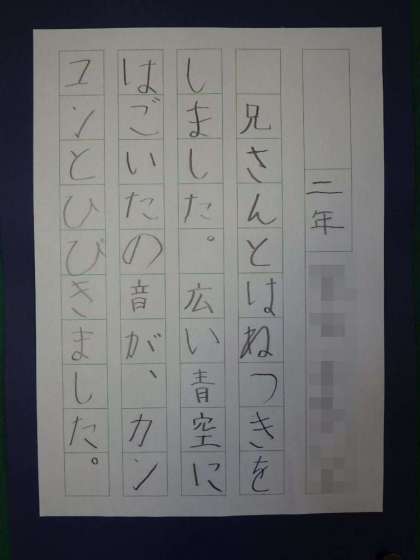 二年
兄さんとはねつきを
しました。広い青空に
はごいたの音が、カン
コンとひびきました。